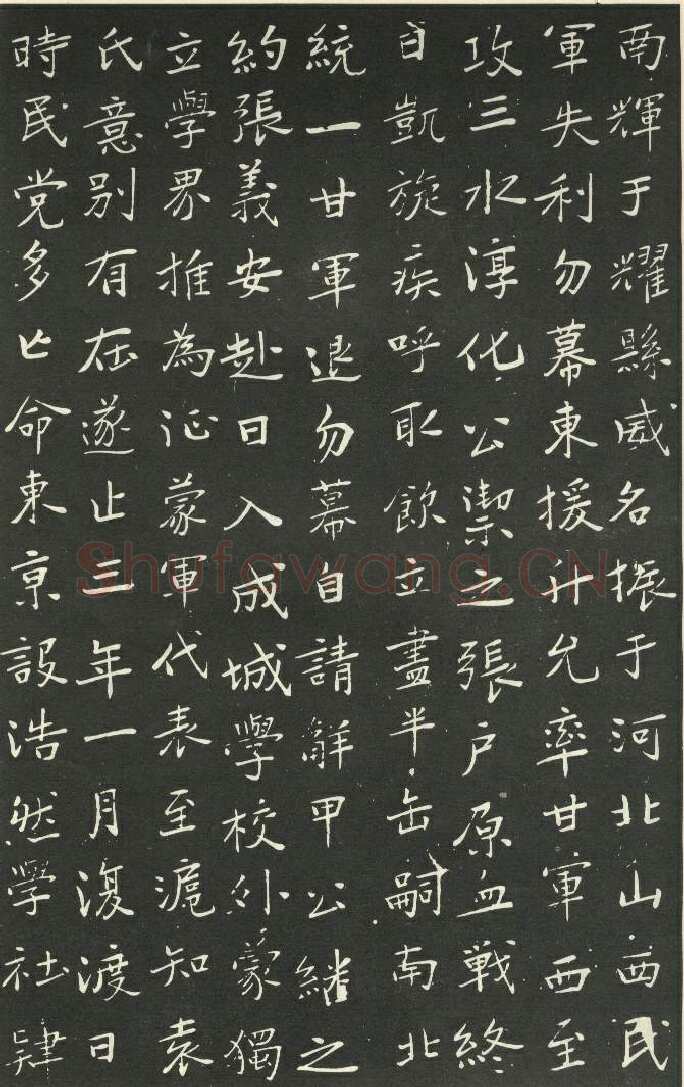 南輝于耀縣威名振于河北山西民
軍失利勿幕東援升允率甘軍西至
攻三水淳化公禦之張戶原血戰終
日凱旋疾呼取飲立盡半缶嗣南北
統一甘軍退勿幕自請解甲公繼之
約張義安赴日入成城學校外蒙獨
立學界推為征蒙軍代表至滬知袁
氏意別有在遂止三年一月復渡日
時民党多亡命東京設浩然學社肄
Shufawang.CN